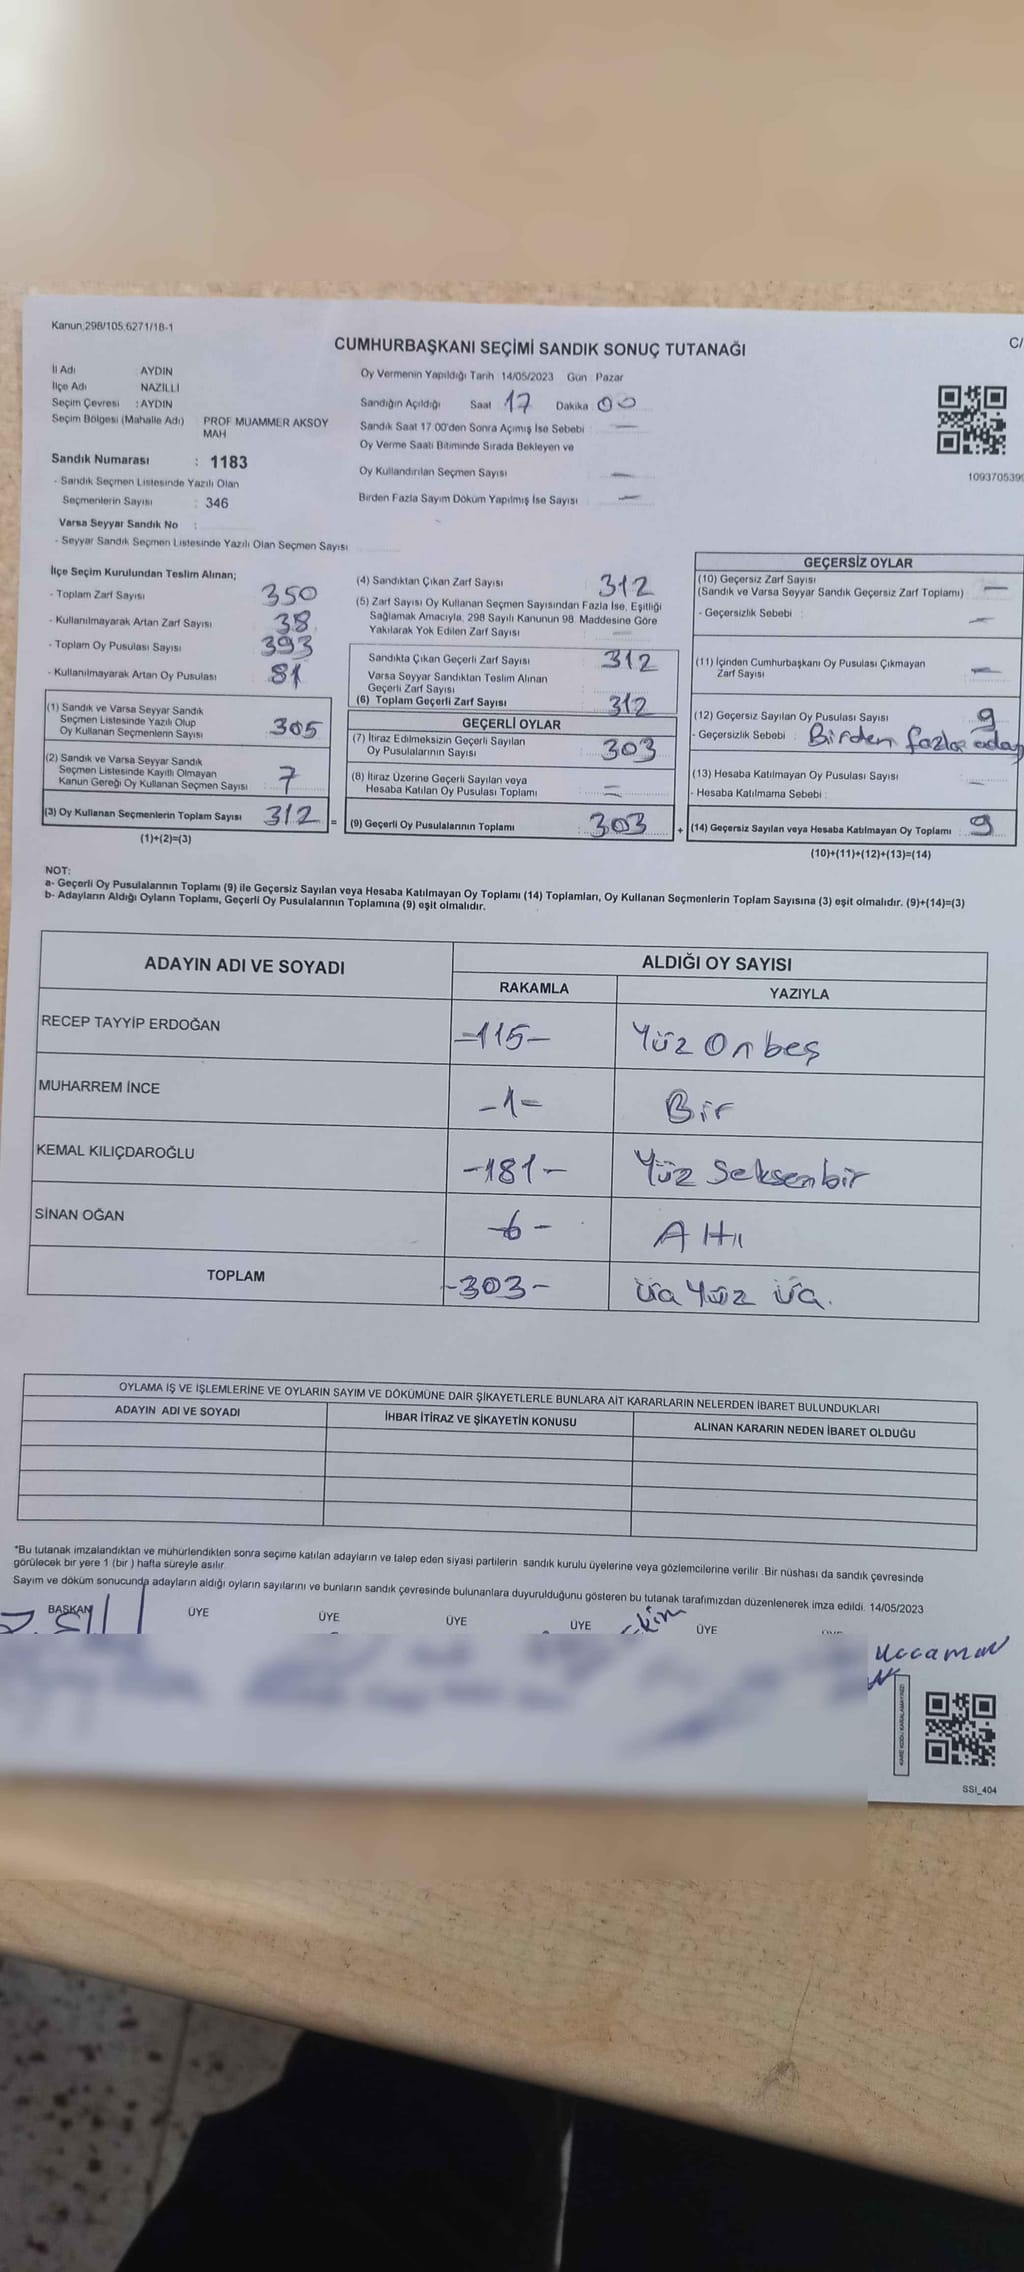 Kanun,298/105,6271/18-1
CUMHURBAŞKANI SEÇİMİ SANDIK SONUÇ TUTANAĞI
C/
İl Adı : AYDIN
İlçe Adı NAZİLLİ
Seçim Çevresi : AYDIN
Seçim Bölgesi (Mahalle Adı) PROF MUAMMER AKSOY
MAH
Sandık Numarası : 1183
- Sandık Seçmen Listesinde Yazılı Olan
Seçmenlerin Sayısı : 346
Varsa Seyyar Sandık No :
- Seyyar Sandık Seçmen Listesinde Yazılı Olan Seçmen Sayısı
Oy Vermenin Yapıldığı Tarih 14/05/2023 Gün Pazar
Sandığın Açıldığı Saat 17 Dakika 00
Sandık Saat 17 00'den Sonra Açımış İse Sebebi : —
Oy Verme Saati Bitiminde Sırada Bekleyen ve
Oy Kullandırılan Seçmen Sayısı —
Birden Fazla Sayım Döküm Yapılmış İse Sayısı —
1093705399
İlçe Seçim Kurulundan Teslim Alınan;
- Toplam Zarf Sayısı 350
- Kullanılmayarak Artan Zarf Sayısı 38
- Toplam Oy Pusulası Sayısı 393
- Kullanılmayarak Artan Oy Pusulası 81
(1) Sandık ve Varsa Seyyar Sandık
Seçmen Listesinde Yazılı Olup
Oy Kullanan Seçmenlerin Sayısı 305
(2) Sandık ve Varsa Seyyar Sandık
Seçmen Listesinde Kayıtlı Olmayan
Kanun Gereği Oy Kullanan Seçmen Sayısı : 7
(3) Oy Kullanan Seçmenlerin Toplam Sayısı 312 =
(1)+(2)=(3)
(4) Sandıktan Çıkan Zarf Sayısı : 312
(5) Zarf Sayısı Oy Kullanan Seçmen Sayısından Fazla İse, Eşitliği
Sağlamak Amacıyla, 298 Sayılı Kanunun 98. Maddesine Göre
Yakılarak Yok Edilen Zarf Sayısı : —
Sandıkta Çıkan Geçerli Zarf Sayısı 312
Varsa Seyyar Sandıktan Teslim Alınan
Geçerli Zarf Sayısı
(6) Toplam Geçerli Zarf Sayısı 312
GEÇERLİ OYLAR
(7) İtiraz Edilmeksizin Geçerli Sayılan
Oy Pusulalarının Sayısı 303
(8) İtiraz Üzerine Geçerli Sayılan veya
Hesaba Katılan Oy Pusulası Toplamı : =
(9) Geçerli Oy Pusulalarının Toplamı : 303 +
GEÇERSİZ OYLAR
(10) Geçersiz Zarf Sayısı
(Sandık ve Varsa Seyyar Sandık Geçersiz Zarf Toplamı) : —
- Geçersizlik Sebebi : —
(11) İçinden Cumhurbaşkanı Oy Pusulası Çıkmayan
Zarf Sayısı : —
(12) Geçersiz Sayılan Oy Pusulası Sayısı 9
- Geçersizlik Sebebi : Birden fazla aday
(13) Hesaba Katılmayan Oy Pusulası Sayısı —
- Hesaba Katılmama Sebebi :
(14) Geçersiz Sayılan veya Hesaba Katılmayan Oy Toplamı : 9
(10)+(11)+(12)+(13)=(14)
NOT:
a- Geçerli Oy Pusulalarının Toplamı (9) ile Geçersiz Sayılan veya Hesaba Katılmayan Oy Toplamı (14) Toplamları, Oy Kullanan Seçmenlerin Toplam Sayısına (3) eşit olmalıdır. (9)+(14)=(3)
b- Adayların Aldığı Oyların Toplamı, Geçerli Oy Pusulalarının Toplamına (9) eşit olmalıdır.
ADAYIN ADI VE SOYADI ALDIĞI OY SAYISI
RAKAMLA YAZIYLA
RECEP TAYYİP ERDOĞAN -115- Yüz On beş
MUHARREM İNCE -1- Bir
KEMAL KILIÇDAROĞLU -181- Yüz Seksen bir
SİNAN OĞAN -6- Altı
TOPLAM -303- Üç Yüz Üç.
OYLAMA İŞ VE İŞLEMLERİNE VE OYLARIN SAYIM VE DÖKÜMÜNE DAİR ŞİKAYETLERLE BUNLARA AİT KARARLARIN NELERDEN İBARET BULUNDUKLARI
ADAYIN ADI VE SOYADI İHBAR İTİRAZ VE ŞİKAYETİN KONUSU ALINAN KARARIN NEDEN İBARET OLDUĞU
*Bu tutanak imzalandıktan ve mühürlendikten sonra seçime katılan adayların ve talep eden siyasi partilerin sandık kurulu üyelerine veya gözlemcilerine verilir .Bir nüshası da sandık çevresinde
görülecek bir yere 1 (bir ) hafta süreyle asılır.
Sayım ve döküm sonucunda adayların aldığı oyların sayılarını ve bunların sandık çevresinde bulunanlara duyurulduğunu gösteren bu tutanak tarafımızdan düzenlenerek imza edildi. 14/05/2023
BAŞKAN ÜYE ÜYE ÜYE ÜYE ÜYE
KARE KODU KARALAMAYINIZ!
SSI_404